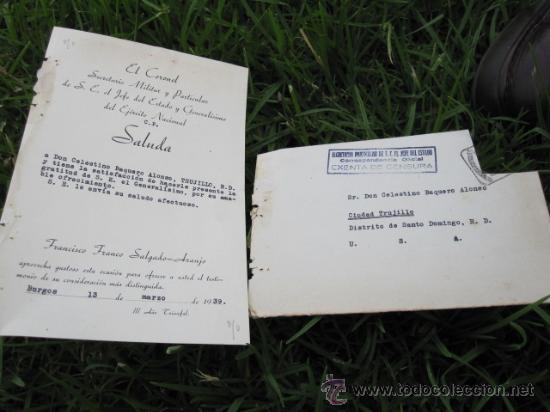 El Coronel
Secretario Militar y Particular
de S. E. el Jefe del Estado y Generalísimo
del Ejército Nacional
C.P.
Saluda
a Don Celestino Baquero Alonso, TRUJILLO, R.D.
y tiene la satisfacción de hacerle presente la
gratitud de S. E. el Generalísimo, por su ama-
ble ofrecimiento.
S. E. le envía su saludo afectuoso.
Francisco Franco Salgado-Araujo
aprovecha gustoso esta ocasión para ofrecer a usted el testi-
monio de su consideración más distinguida.
Burgos 13 de marzo de 1939.
III Año Triunfal.
SECRETARIA PARTICULAR DE S. E. EL JEFE DEL ESTADO
Correspondencia Oficial
EXENTA DE CENSURA
Sr. Don Celestino Baquero Alonso
Ciudad Trujillo
Distrito de Santo Domingo, R. D.
U. S. A.
http://www.todocoleccion.net